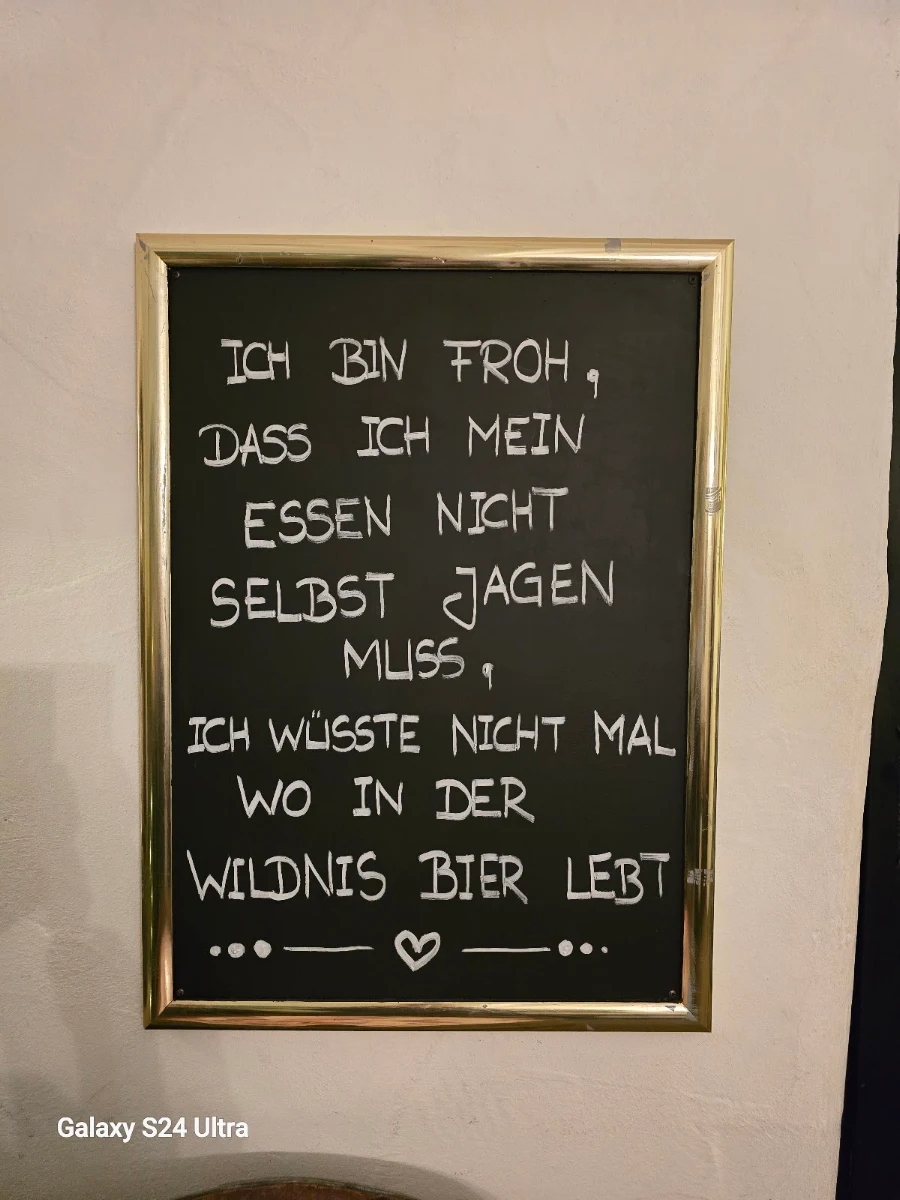 ICH BIN FROH,
DASS ICH MEIN
ESSEN NICHT
SELBST JAGEN
MUSS,
ICH WÜSSTE NICHT MAL
WO IN DER
WILDNIS BIER LEBT
Galaxy S24 Ultra